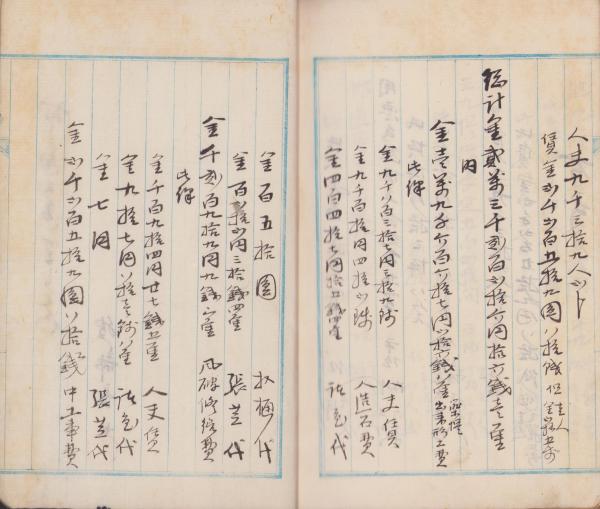 人夫九千三拾九人
賃金 千 百五拾九圓八拾銭 但
総計金貳萬三千貳百 拾六円拾六銭壱厘
内
金壱萬九千六百六拾七円 拾六銭八厘
此譯
金九千八百三拾七円三拾九銭 人夫賃
金九千百拾円四拾 銭 人造石費
金四百四拾七円拾五銭四厘 諸色代
金百五拾圓 杁樋代
金百 拾 円三拾銭四厘 張芝代
金千貳百九拾九円九銭 厘 風破修繕費
此譯
金千百九拾四円廿七銭五厘 人夫賃
金九拾七円八拾壱銭八厘 諸色代
金七円 張芝代
金 千 百五拾九圓八拾銭 中工事費